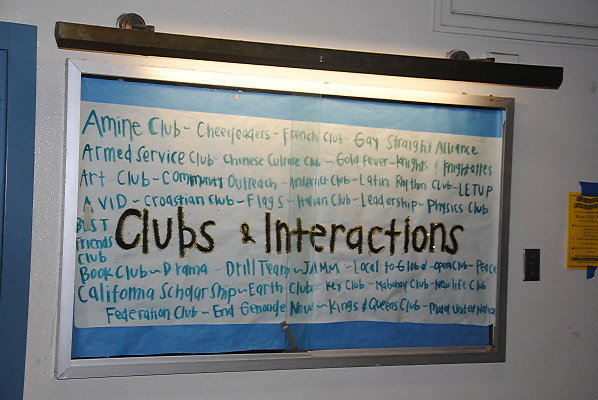 Amine Club - Cheerleaders - French Club - Gay Straight Alliance
Armed Service Club Chinese Culture Club - Gold Fever - Knights & Knightettes
Art Club - Community Outreach - Interact Club - Latin Rhythm Club - LETUP
AVID - Croastian Club - Flags - Italian Club - Leadership - Physics Club
BEST Friends Club
Clubs & Interactions
Book Club - Drama - Drill Team - JAMM - Local to Global - Open Club - Peace
California Scholarship - Earth Club - Key Club - Mabuhay Club - New life Club
Federation Club - End Genocide Now - Kings & Queens Club - Model United Nation